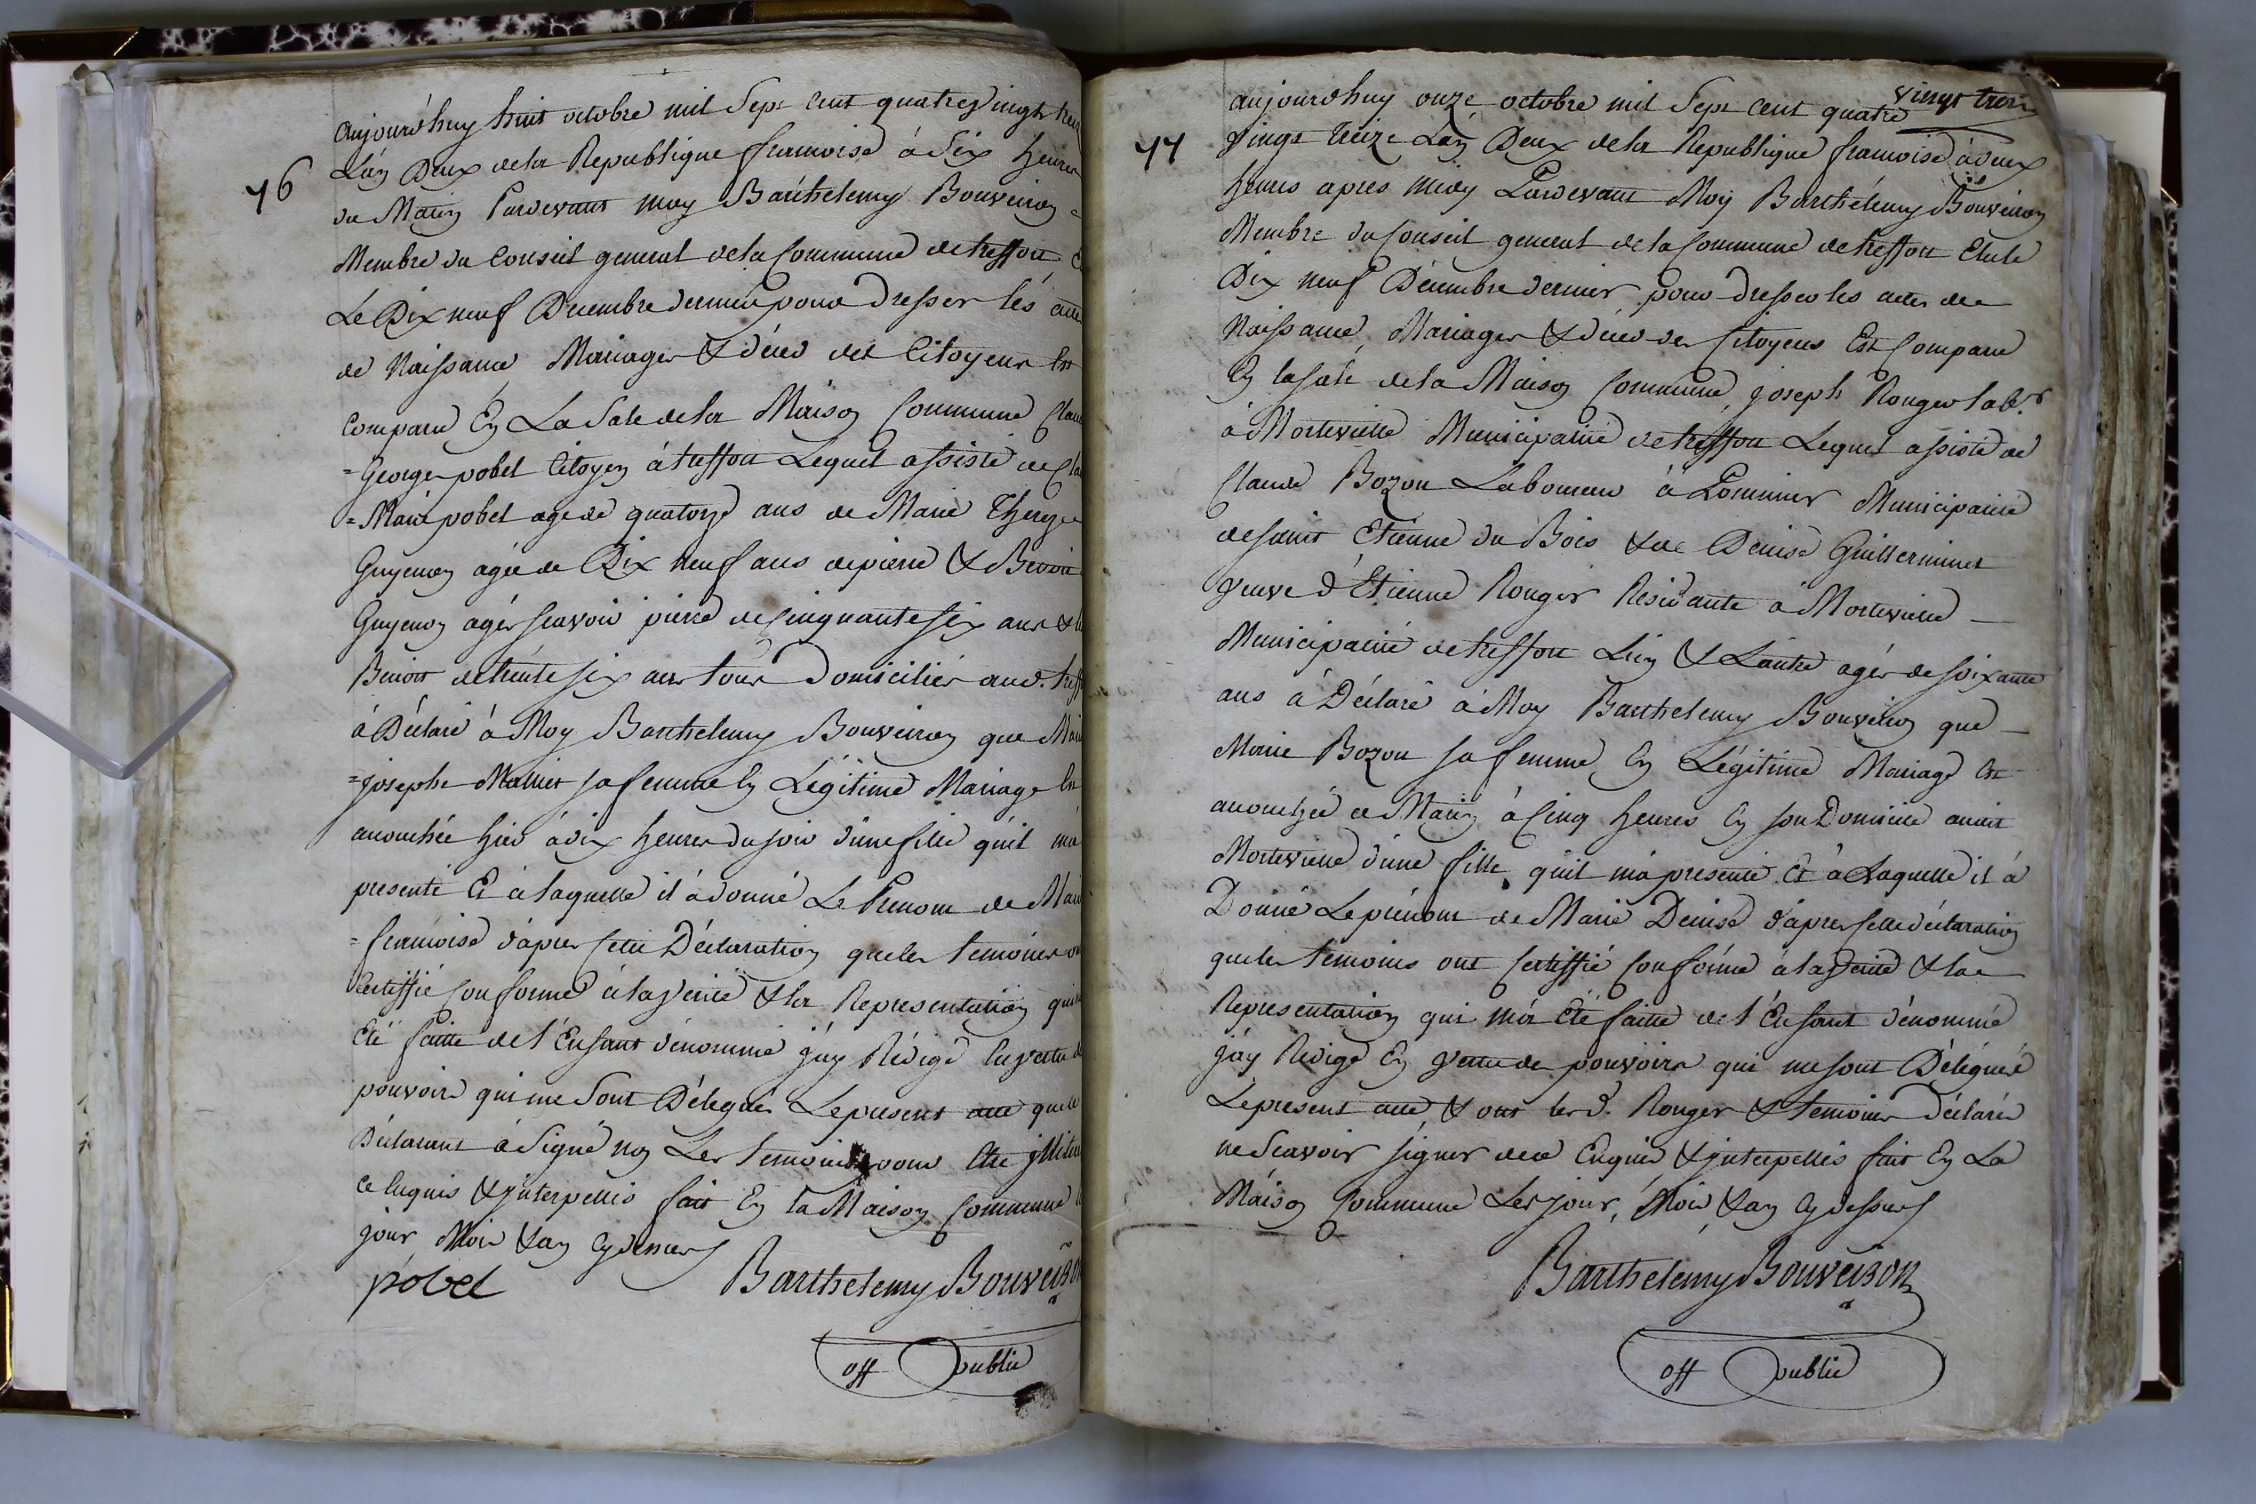 aujourd'huy huit octobre mil Sept Cent quatrevingt treiz
76
L'an Deux de la Republique francoise à Six heures
du Matin Pardevant moy Barthelemy Bouveiron
Membre du Conseil general de la Commune de treffort
Le Dix neuf Decembre dernier pour Dresser les actes
de Naissance Mariages & déces des Citoyens Est
Comparu En La Sale de la Maison Commune Clau
=George pobel Citoyen à treffort Lequel assisté de Cla
=Marie pobel agé de quatorze ans de Marie Therese
Guyenon agée de Dix neuf ans de pierre & Benoit
Guyenon agés scavoir pierre de Cinquante six ans &
Benoit de trente six ans tous Domiciliés aud. treff
à Déclaré à Moy Barthelemy Bouveiron que Mari
=josephe sa femme En Légitime Mariage Est
accouchée hier à dix heures du soir d'une fille qu'il m'a
presenté Et à laquelle il à donné Le Prenom de Mari
=francoise d'aprés cette Déclaration que les temoins on
Certiffié Conforme à la vérité & la Representation qui
Eté faitte de l'Enfant dénommé j'ay Rédigé En vertu d
pouvoirs qui me Sont Délégués Le present acte que le
Déclarant à Signé non Les temoins pour Etre jlliter
ce Enquis & jnterpellés fait En la Maison Commune
jour Mois & an Cy dessus
pobel Barthelemy Bouveiron
off public
aujourd'huy onze octobre mil Sept Cent quatre vingt treize
77
vingt treize L'an Deux de la Republique francoise à deux
heures apres midy Pardevant Moy Barthélemy Bouveiron
Membre du Conseil general de la Commune de treffort Elu le
Dix neuf Décembre dernier pour Dresser les actes de
Naissance, Mariages & déces des Citoyens Est Comparu
En la Sale de la Maison Commune, joseph Rouger lab.r
à Montevielle Municipalité de treffort Lequel assisté de
Claude Bozon Laboureur à Lominier Municipalité
de saint Etienne du Bois & de Denise Guillerminet
veuve d'Etienne Rouger Residante à Montevielle
Municipalité de treffort L'un & L'autre agés de soixante
ans à Déclaré à Moy Barthelemy Bouveiron que
Marie Bozon sa femme En Légitime Mariage Est
accouchée ce Matin à Cinq heures En son Domicile audit
Montevielle d'une fille qu'il m'a presenté Et à Laquelle il à
Donné Le prénom de Marie Denise d'après cette déclaration
que les temoins ont Certiffié Conforme à la verité & la
Representation qui m'à Eté faitte de l'Enfant dénommé
j'ay Redigé En vertu des pouvoirs qui me sont Délégués
Le present acte & ont les d. Rouger & temoins déclarés
ne Scavoir signer de ce Enquis & jnterpellés fait En La
Maison Commune Les jour, Mois & an Cy dessus
Barthelemy Bouveiron
off public